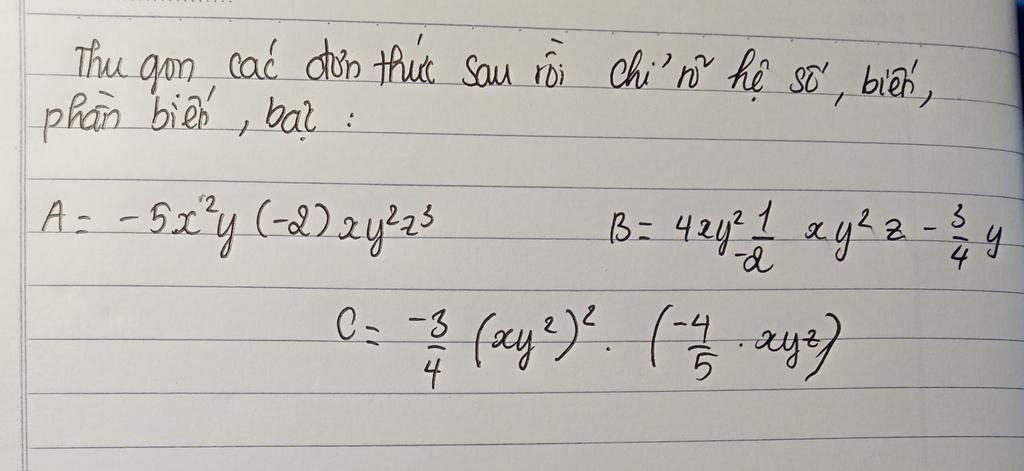 Thu gọn các đơn thức sau rồi chỉ rõ hệ số, biến,
phần biến, bậc :
A = -5x²y (-2) xy²z³ B = 4xy² 1/-2 xy² z - 3/4 y
C = -3/4 (xy²)² . (-4/5 . xyz)